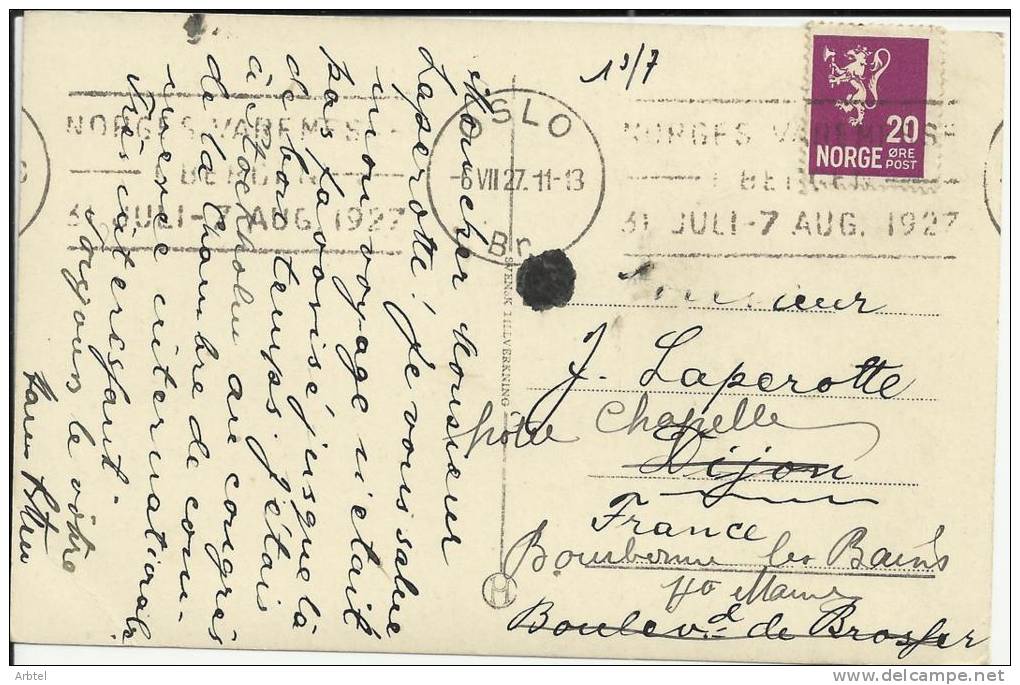 13/7
Mon cher Monsieur
Laperotte! Je vous salue
mon voyage n'etait
pas favorisé jusque là
de bon temps. J'étais
à Stockholm au congrès
de la Chambre de com-
merce internationale
Très intéressant.
le vôtre
OSLO
-6 VII 27. 11-13
Br.
NORGES VAREMESSE
I BERGEN
31. JULI-7 AUG. 1927
NORGES VAREMESSE
I BERGEN
31. JULI-7 AUG. 1927
20
NORGE ØRE
POST
SVENSK TILLVERKNING
H
Monsieur
J. Laperotte
hôtel Chapelle
Dijon
France
Bourbonne les Bains
Hte Marne
Boulevd de Brosses
Arbtel
www.delcampe.net